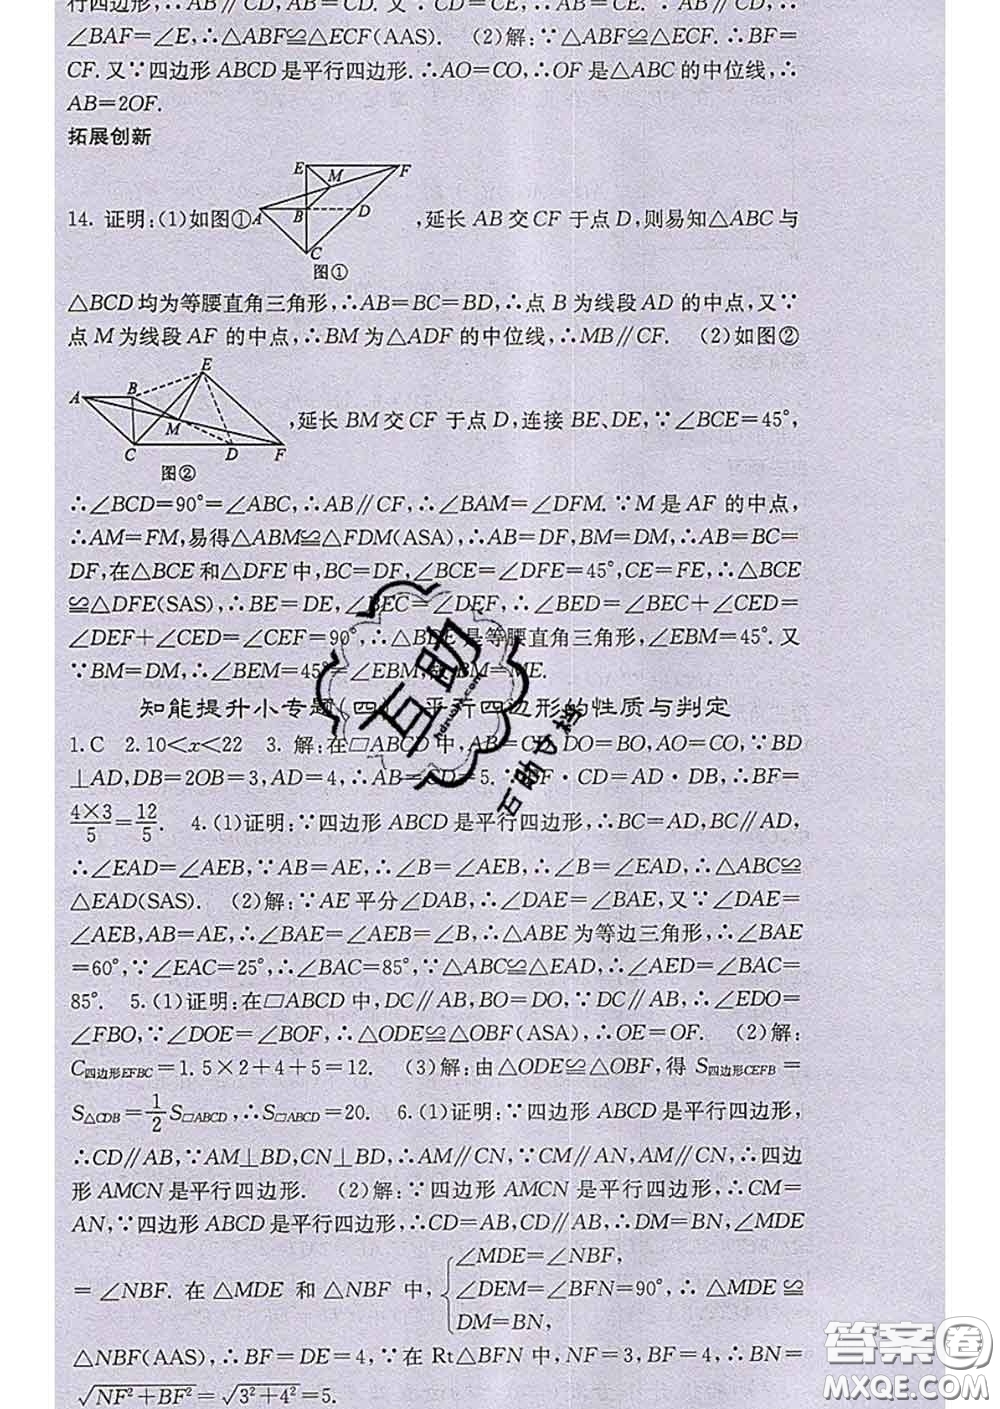 行四边形,∴AB∥CD,AB=CD. 又∵CD=CE,∴AB=CE. ∵AB∥CD,∴
∠BAF=∠E,∴△ABF≌△ECF(AAS). (2)解:∵△ABF≌△ECF. ∴BF=
CF. 又∵四边形 ABCD 是平行四边形. ∴AO=CO,∴OF 是△ABC 的中位线,∴
AB=2OF.
拓展创新
E F M A B D C
图①
14. 证明:(1)如图① ,延长 AB 交 CF 于点 D,则易知△ABC 与
△BCD 均为等腰直角三角形,∴AB=BC=BD,∴点 B 为线段 AD 的中点,又∵
点 M 为线段 AF 的中点,∴BM 为△ADF 的中位线,∴MB∥CF. (2)如图②
A B E M C D F
图②
,延长 BM 交 CF 于点 D,连接 BE、DE,∵∠BCE=45°,
∴∠BCD=90°=∠ABC,∴AB∥CF,∴∠BAM=∠DFM. ∵M 是 AF 的中点,
∴AM=FM,易得△ABM≌△FDM(ASA),∴AB=DF,BM=DM,∴AB=BC=
DF,在△BCE 和△DFE 中,BC=DF,∠BCE=∠DFE=45°,CE=FE,∴△BCE
≌△DFE(SAS),∴BE=DE,∠BEC=∠DEF,∴∠BED=∠BEC+∠CED=
∠DEF+∠CED=∠CEF=90°,∴△BDE 是等腰直角三角形,∠EBM=45°. 又
∵BM=DM,∴∠BEM=45°=∠EBM,∴BM=ME.
知能提升小专题(四) 平行四边形的性质与判定
1. C 2. 10<x<22 3. 解:在▱ABCD 中,AB=CD,DO=BO,AO=CO,∵BD
⊥AD,DB=2OB=3,AD=4,∴AB=CD=5. ∵BF·CD=AD·DB,∴BF=
4×3/5=12/5. 4. (1)证明:∵四边形 ABCD 是平行四边形,∴BC=AD,BC∥AD,
∴∠EAD=∠AEB,∵AB=AE,∴∠B=∠AEB,∴∠B=∠EAD,∴△ABC≌
△EAD(SAS). (2)解:∵AE 平分∠DAB,∴∠DAE=∠BAE,又∵∠DAE=
∠AEB,AB=AE,∴∠BAE=∠AEB=∠B,∴△ABE 为等边三角形,∴∠BAE
=60°,∵∠EAC=25°,∴∠BAC=85°,∵△ABC≌△EAD,∴∠AED=∠BAC=
85°. 5. (1)证明:在▱ABCD 中,DC∥AB,BO=DO,∵∠EDO=
∠FBO,∵∠DOE=∠BOF,∴△ODE≌△OBF(ASA),∴OE=OF. (2)解:
C四边形EFBC=1.5×2+4+5=12. (3)解:由△ODE≌△OBF,得 S四边形CEFB=
S△CDB=1/2 S▱ABCD,∴S▱ABCD=20. 6. (1)证明:∵四边形 ABCD 是平行四边形,
∴CD∥AB,∵AM⊥BD,CN⊥BD,∴AM∥CN,∵CM∥AN,AM∥CN,∴四边
形 AMCN 是平行四边形. (2)解:∵四边形 AMCN 是平行四边形,∴CM=
AN,∵四边形 ABCD 是平行四边形,∴CD=AB,CD∥AB,∴DM=BN,∠MDE
=∠NBF. 在 △MDE 和 △NBF 中, { ∠MDE=∠NBF, ∠DEM=∠BFN=90°, DM=BN, ∴ △MDE ≌
△NBF(AAS),∴BF=DE=4,∵在 Rt△BFN 中,NF=3,BF=4,∴BN=
√(NF²+BF²)=√(3²+4²)=5.
互助
互助文档
答案圈
MXQE.COM